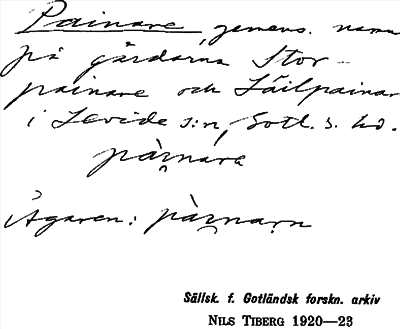 Painare, gemens. namn
på gårdarna Stor-
painare och Läilpainar
i Levide s:n, Gotl. s. hd.
pài̯nara
Ägaren: pài̯narn
Sällsk. f. Gotländsk forskn. arkiv
NILS TIBERG 1920—23